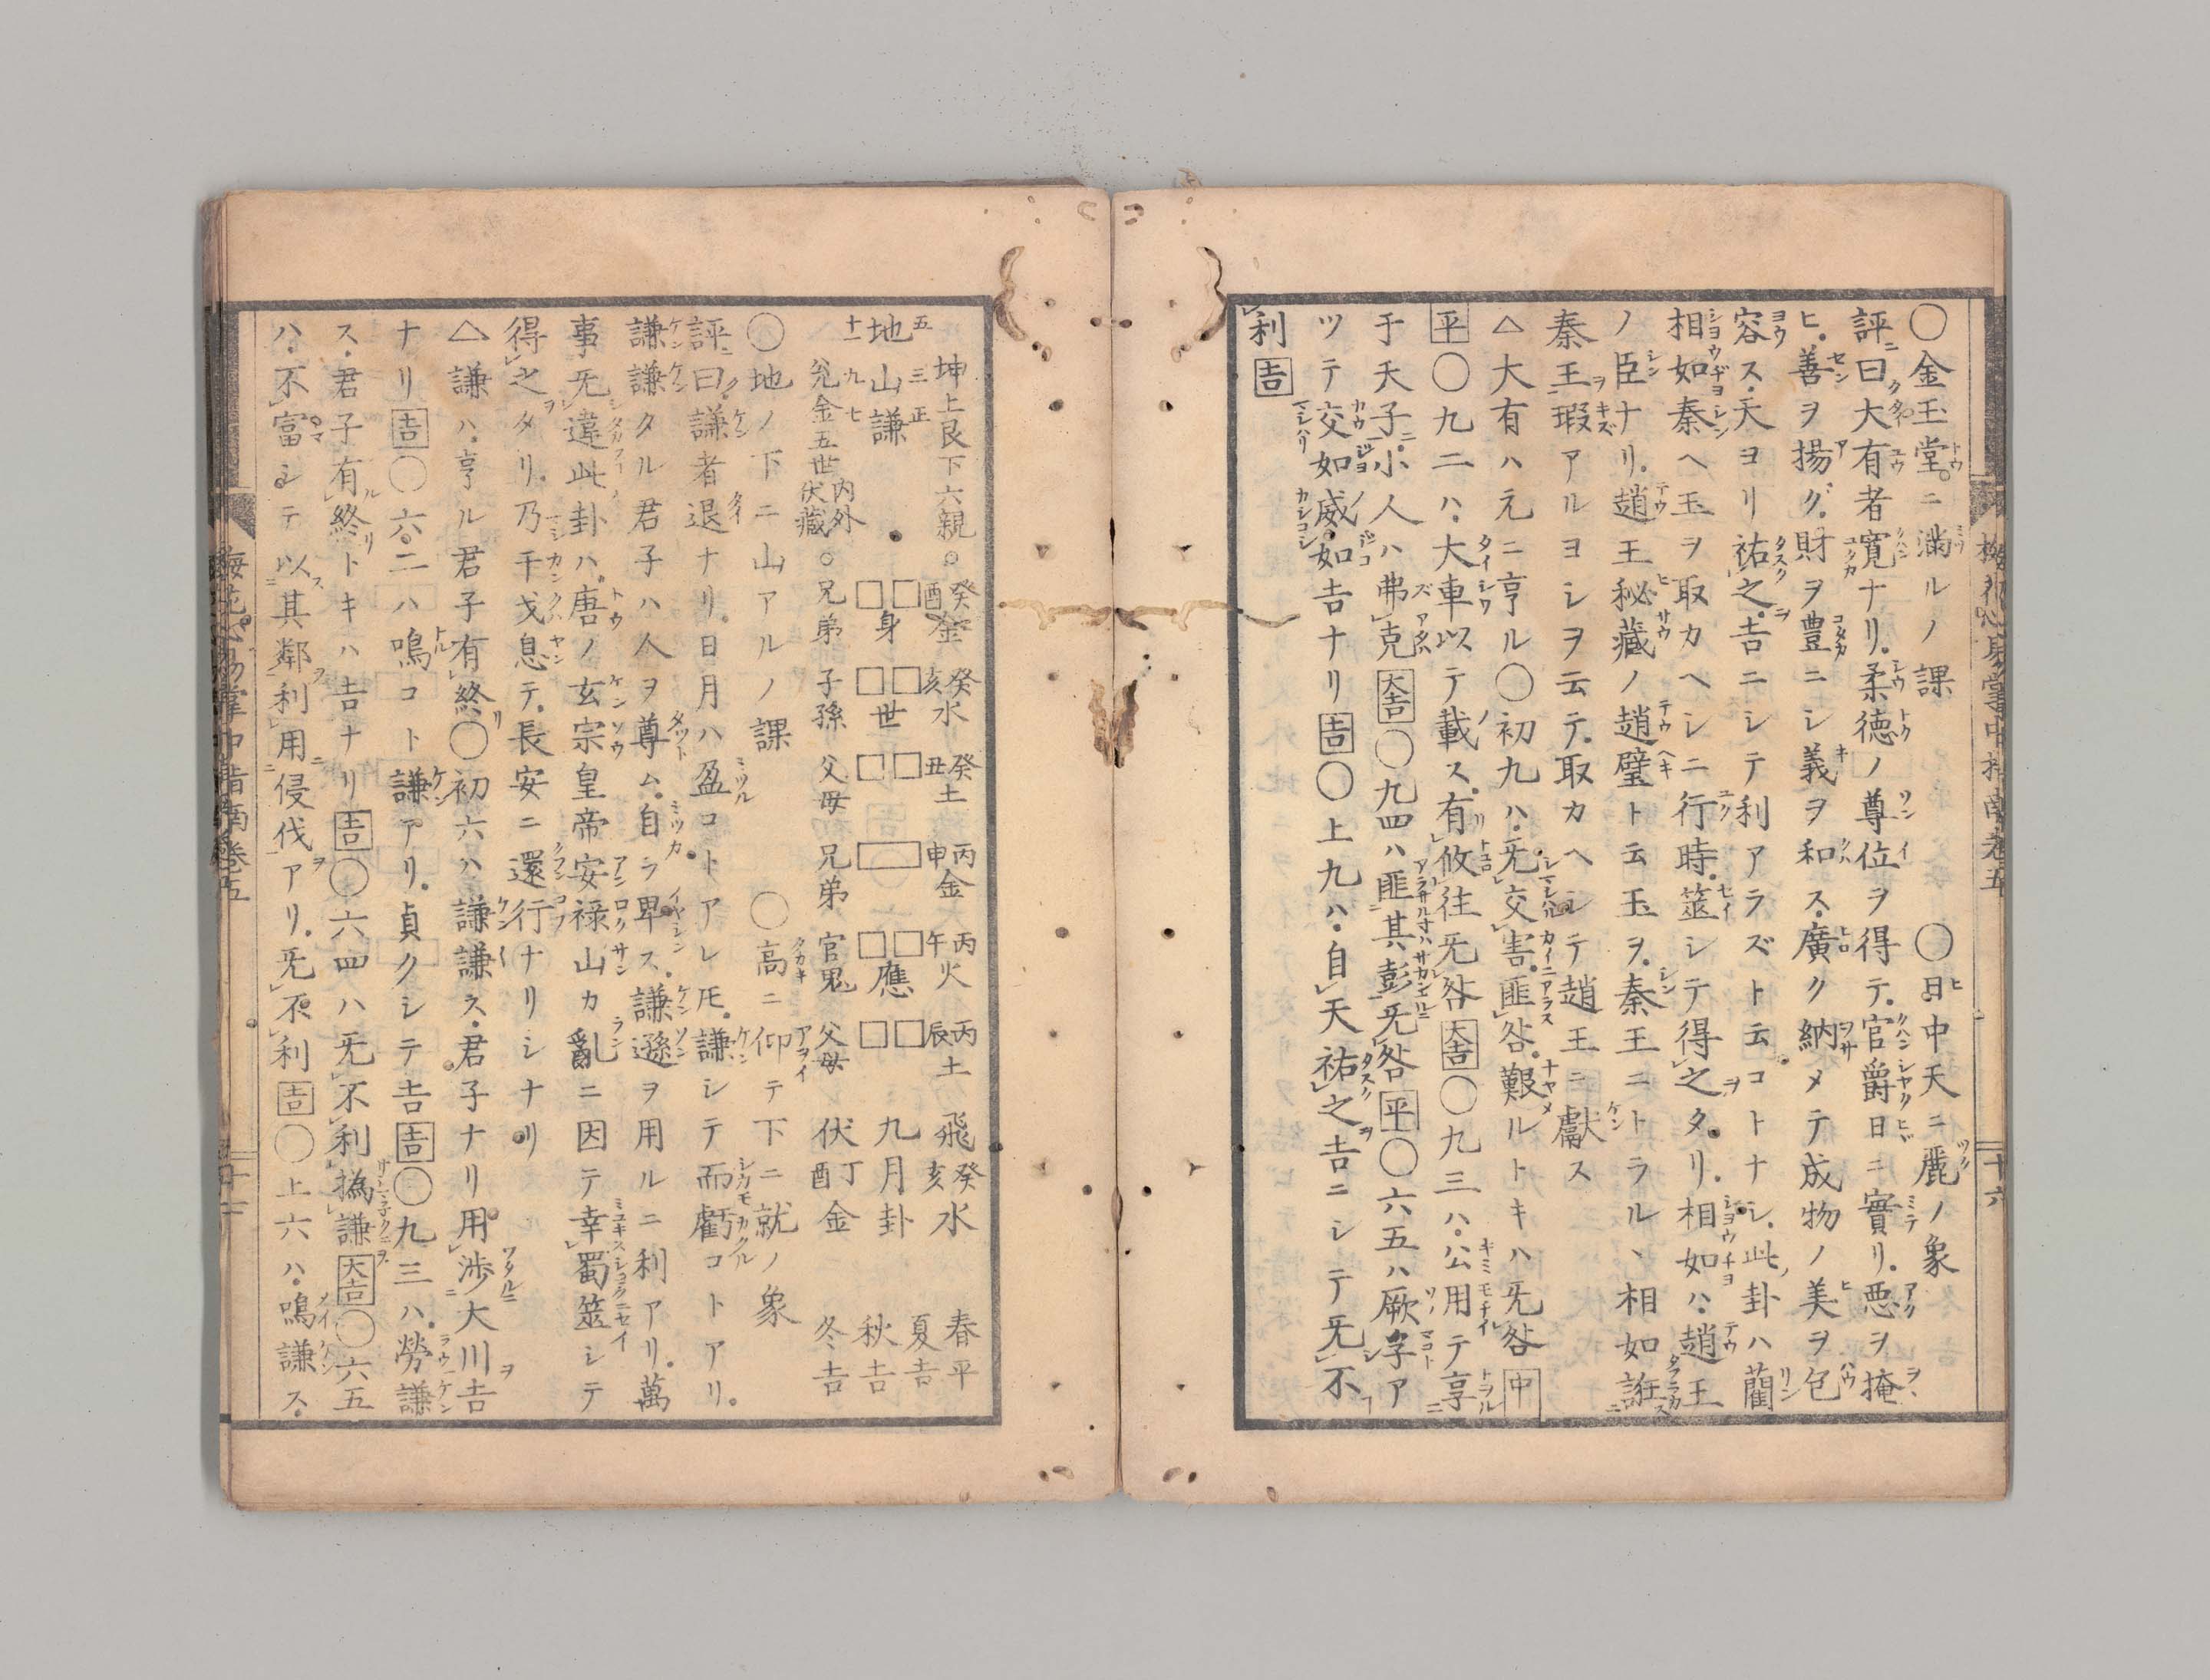 〇金玉堂ニ滿ルノ課 〇日中天ニ麗ノ象
評曰大有者寛ナリ柔德ノ尊位ヲ得テ官爵日ニ實リ悪ヲ掩
ヒ善ヲ揚ク財ヲ豊ニシ義ヲ和ス廣ク納メテ成物ノ美ヲ包
容ス天ヨリ祐之吉ニシテ利アラズト云コトナシ此卦ハ藺
相如秦ヘ玉ヲ取カヘシニ行時筮シテ得之タリ相如ハ趙王
ノ臣ナリ趙王秘藏ノ趙璧ト云玉ヲ秦王ニトラル丶相如誑
秦王瑕アルヨシヲ云テ取カヘシテ趙王ニ獻ス
△大有ハ元ニ亨ル〇初九ハ无交害匪咎艱ルトキハ无咎中
平〇九二ハ大車以テ載ス有攸往无咎大吉〇九三ハ公用テ享
于天子小人ハ弗克大吉〇九四ハ匪其彭无咎平〇六五ハ厥孚ア
ツテ交如威如吉ナリ吉〇上九ハ自天祐之吉ニシテ无不
利吉
十六
坤上艮下六親〇癸酉金 癸亥水 癸丑土 丙申金 丙午火 丙辰土 飛癸亥水 春平
五 三 正
地山謙 身 世 應 九月卦 夏吉 秋吉
十一 九 七
兌金五世内外伏藏〇兄弟 子孫 父母 兄弟 官鬼 父母 伏丁酉金 冬吉
〇地ノ下ニ山アルノ課 〇高ニ仰テ下ニ就ノ象
評曰謙者退ナリ日月ハ盈コトアレ𪜈謙シテ而虧コトアリ
謙謙タル君子ハ人ヲ尊ム自ラ卑ス謙遜ヲ用ルニ利アリ萬
事无違此卦ハ唐ノ玄宗皇帝安禄山カ亂ニ因テ幸蜀筮シテ
得之タリ乃干戈息テ長安ニ還行ナリシナリ
△謙ハ亨ル君子有終〇初六ハ謙謙ス君子ナリ用渉大川吉
ナリ吉〇六二ハ鳴コト謙アリ貞クシテ吉吉〇九三ハ勞謙
ス君子有終トキハ吉ナリ吉〇六四ハ无不利撝謙大吉〇六五
ハ不富シテ以其鄰利用侵伐アリ无不利吉〇上六ハ鳴謙ス